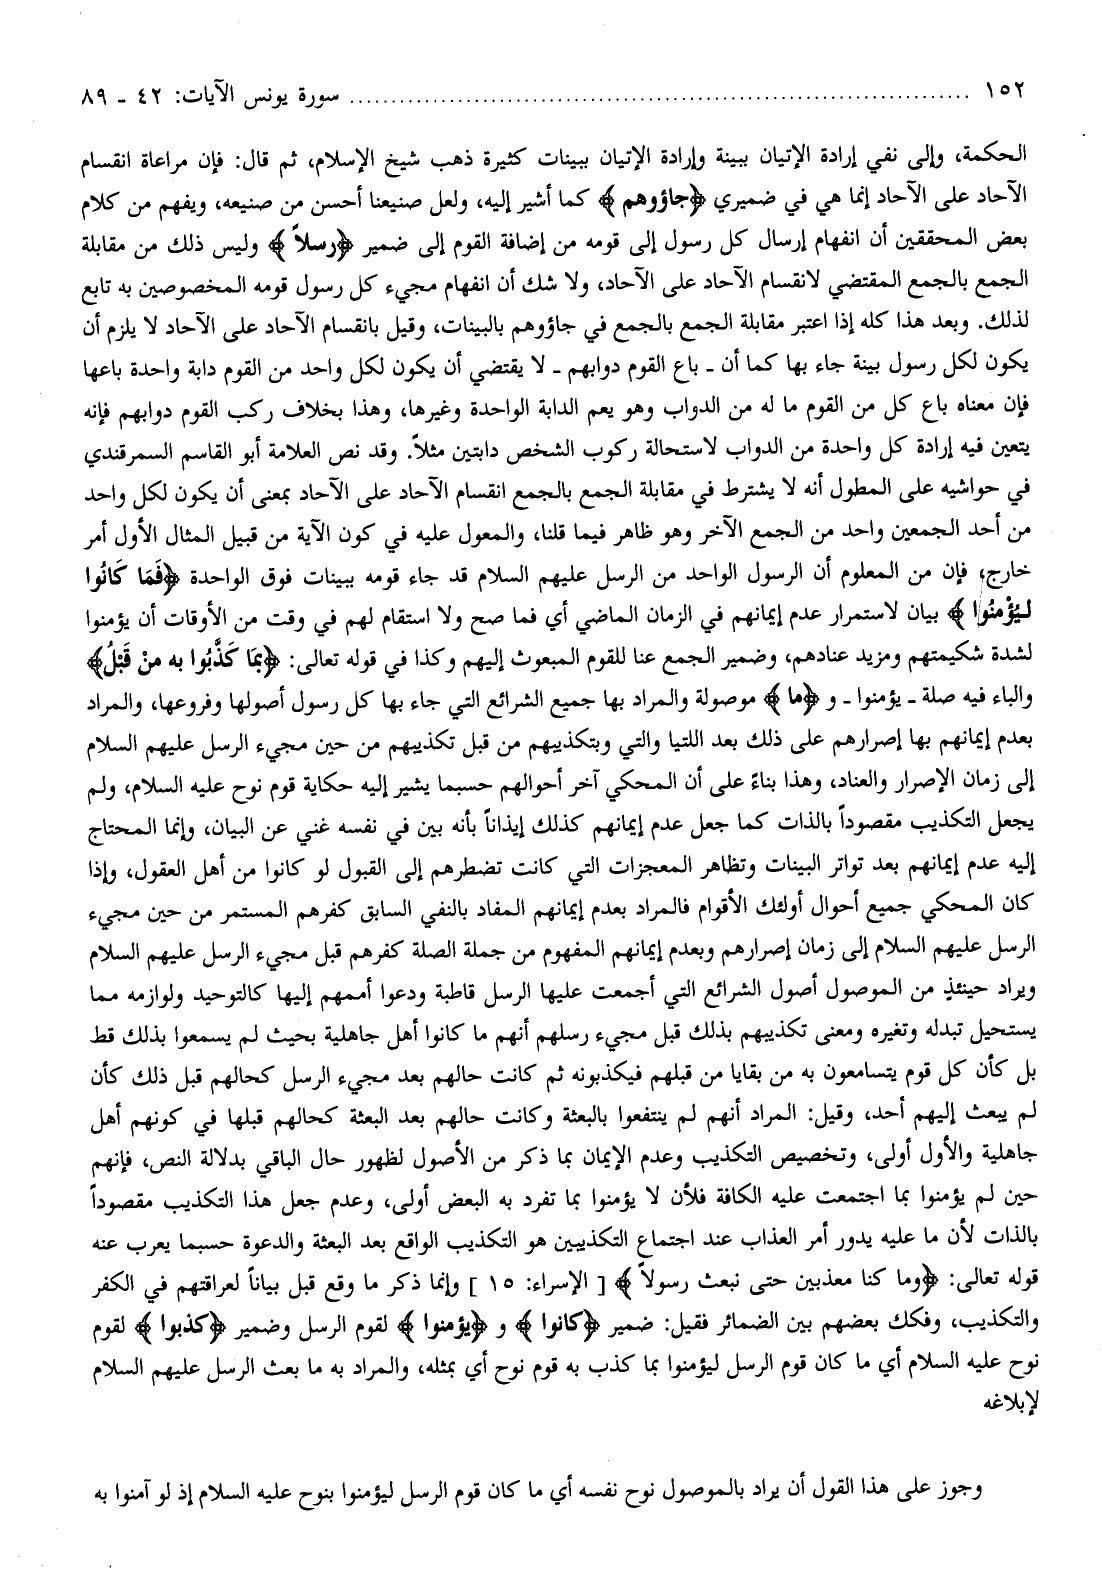 ١٥٢ ........................................................................ سورة يونس الآيات: ٤٢ ـ ٨٩
الحكمة، وإلى نفي إرادة الإتيان ببينة وإرادة الإتيان ببينات كثيرة ذهب شيخ الإسلام، ثم قال: فإن مراعاة انقسام
الآحاد على الآحاد إنما هي في ضميري ﴿جاؤوهم﴾ كما أشير إليه، ولعل صنيعنا أحسن من صنيعه، ويفهم من كلام
بعض المحققين أن انفهام إرسال كل رسول إلى قومه من إضافة القوم إلى ضمير ﴿رسلاً﴾ وليس ذلك من مقابلة
الجمع بالجمع المقتضي لانقسام الآحاد على الآحاد، ولا شك أن انفهام مجيء كل رسول قومه المخصوصين به تابع
لذلك. وبعد هذا كله إذا اعتبر مقابلة الجمع بالجمع في جاؤوهم بالبينات، وقيل بانقسام الآحاد على الآحاد لا يلزم أن
يكون لكل رسول بينة جاء بها كما أن ـ باع القوم دوابهم ـ لا يقتضي أن يكون لكل واحد من القوم دابة واحدة باعها
فإن معناه باع كل من القوم ما له من الدواب وهو يعم الدابة الواحدة وغيرها، وهذا بخلاف ركب القوم دوابهم فإنه
يتعين فيه إرادة كل واحدة من الدواب لاستحالة ركوب الشخص دابتين مثلاً. وقد نص العلامة أبو القاسم السمرقندي
في حواشيه على المطول أنه لا يشترط في مقابلة الجمع بالجمع انقسام الآحاد على الآحاد بمعنى أن يكون لكل واحد
من أحد الجمعين واحد من الجمع الآخر وهو ظاهر فيما قلنا، والمعول عليه في كون الآية من قبيل المثال الأول أمر
خارج، فإن من المعلوم أن الرسول الواحد من الرسل عليهم السلام قد جاء قومه ببينات فوق الواحدة ﴿فَمَا كَانُوا
لِيُؤْمنُوا﴾ بيان لاستمرار عدم إيمانهم في الزمان الماضي أي فما صح ولا استقام لهم في وقت من الأوقات أن يؤمنوا
لشدة شكيمتهم ومزيد عنادهم، وضمير الجمع عنا للقوم المبعوث إليهم وكذا في قوله تعالى: ﴿بمَا كَذَّبُوا به منْ قَبْلُ﴾
والباء فيه صلة ـ يؤمنوا ـ و ﴿ما﴾ موصولة والمراد بها جميع الشرائع التي جاء بها كل رسول أصولها وفروعها، والمراد
بعدم إيمانهم بها إصرارهم على ذلك بعد اللتيا والتي وبتكذيبهم من قبل تكذيبهم من حين مجيء الرسل عليهم السلام
إلى زمان الإصرار والعناد، وهذا بناءً على أن المحكي آخر أحوالهم حسبما يشير إليه حكاية قوم نوح عليه السلام، ولم
يجعل التكذيب مقصوداً بالذات كما جعل عدم إيمانهم كذلك إيذاناً بأنه بين في نفسه غني عن البيان، وإنما المحتاج
إليه عدم إيمانهم بعد تواتر البينات وتظاهر المعجزات التي كانت تضطرهم إلى القبول لو كانوا من أهل العقول، وإذا
كان المحكي جميع أحوال أولئك الأقوام فالمراد بعدم إيمانهم المفاد بالنفي السابق كفرهم المستمر من حين مجيء
الرسل عليهم السلام إلى زمان إصرارهم وبعدم إيمانهم المفهوم من جملة الصلة كفرهم قبل مجيء الرسل عليهم السلام
ويراد حينئذٍ من الموصول أصول الشرائع التي أجمعت عليها الرسل قاطبة ودعوا أممهم إليها كالتوحيد ولوازمه مما
يستحيل تبدله وتغيره ومعنى تكذيبهم بذلك قبل مجيء رسلهم أنهم ما كانوا أهل جاهلية بحيث لم يسمعوا بذلك قط
بل كأن كل قوم يتسامعون به من بقايا من قبلهم فيكذبونه ثم كانت حالهم بعد مجيء الرسل كحالهم قبل ذلك كأن
لم يبعث إليهم أحد، وقيل: المراد أنهم لم ينتفعوا بالبعثة وكانت حالهم بعد البعثة كحالهم قبلها في كونهم أهل
جاهلية والأول أولى، وتخصيص التكذيب وعدم الإيمان بما ذكر من الأصول لظهور حال الباقي بدلالة النص، فإنهم
حين لم يؤمنوا بما اجتمعت عليه الكافة فلأن لا يؤمنوا بما تفرد به البعض أولى، وعدم جعل هذا التكذيب مقصوداً
بالذات لأن ما عليه يدور أمر العذاب عند اجتماع التكذيبين هو التكذيب الواقع بعد البعثة والدعوة حسبما يعرب عنه
قوله تعالى: ﴿وما كنا معذبين حتى نبعث رسولاً﴾ [ الإسراء: ١٥ ] وإنما ذكر ما وقع قبل بياناً لعراقتهم في الكفر
والتكذيب، وفكك بعضهم بين الضمائر فقيل: ضمير ﴿كانوا﴾ و ﴿يؤمنوا﴾ لقوم الرسل وضمير ﴿كذبوا﴾ لقوم
نوح عليه السلام أي ما كان قوم الرسل ليؤمنوا بما كذب به قوم نوح أي بمثله، والمراد به ما بعث الرسل عليهم السلام
لإبلاغه
وجوز على هذا القول أن يراد بالموصول نوح نفسه أي ما كان قوم الرسل ليؤمنوا بنوح عليه السلام إذ لو آمنوا به